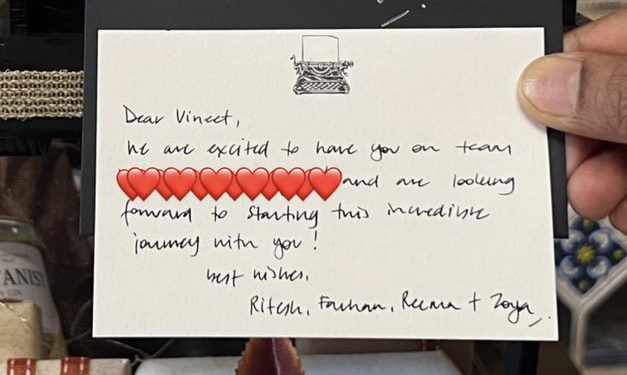 Dear Vineet,
We are excited to have you on team
❤️❤️❤️❤️❤️❤️ and are looking
forward to starting this incredible
journey with you!
best wishes,
Ritesh, Farhan, Reema + Zoya
ANIST